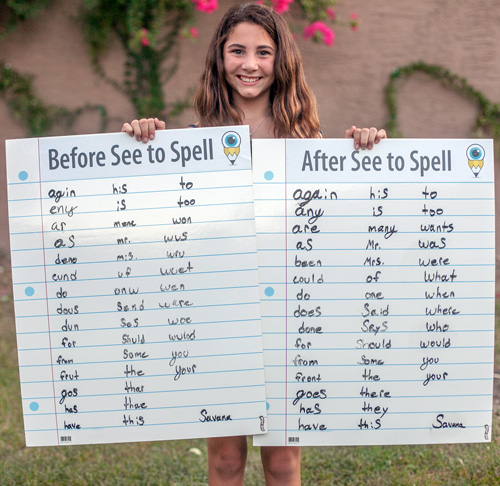 Before See to Spell
agin his to
eny is too
ar mene won
as mr. wus
mis.
uf wuet
do onw wen
dous Send ware
dun Ses woe
for Shuld
from Some you
frut the your
gos thar
has thae
have this Savana
After See to Spell
again his to
any is too
are many wants
as Mr. was
been Mrs. were
could of what
do one when
does Said where
done Says who
for Should would
from Some you
front the your
goes there
has they
have this Savana